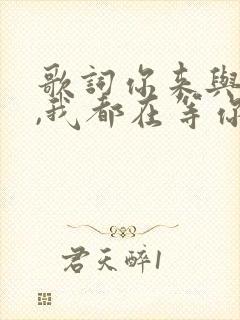 歌詞你來與
,我都在等你
君天醉1